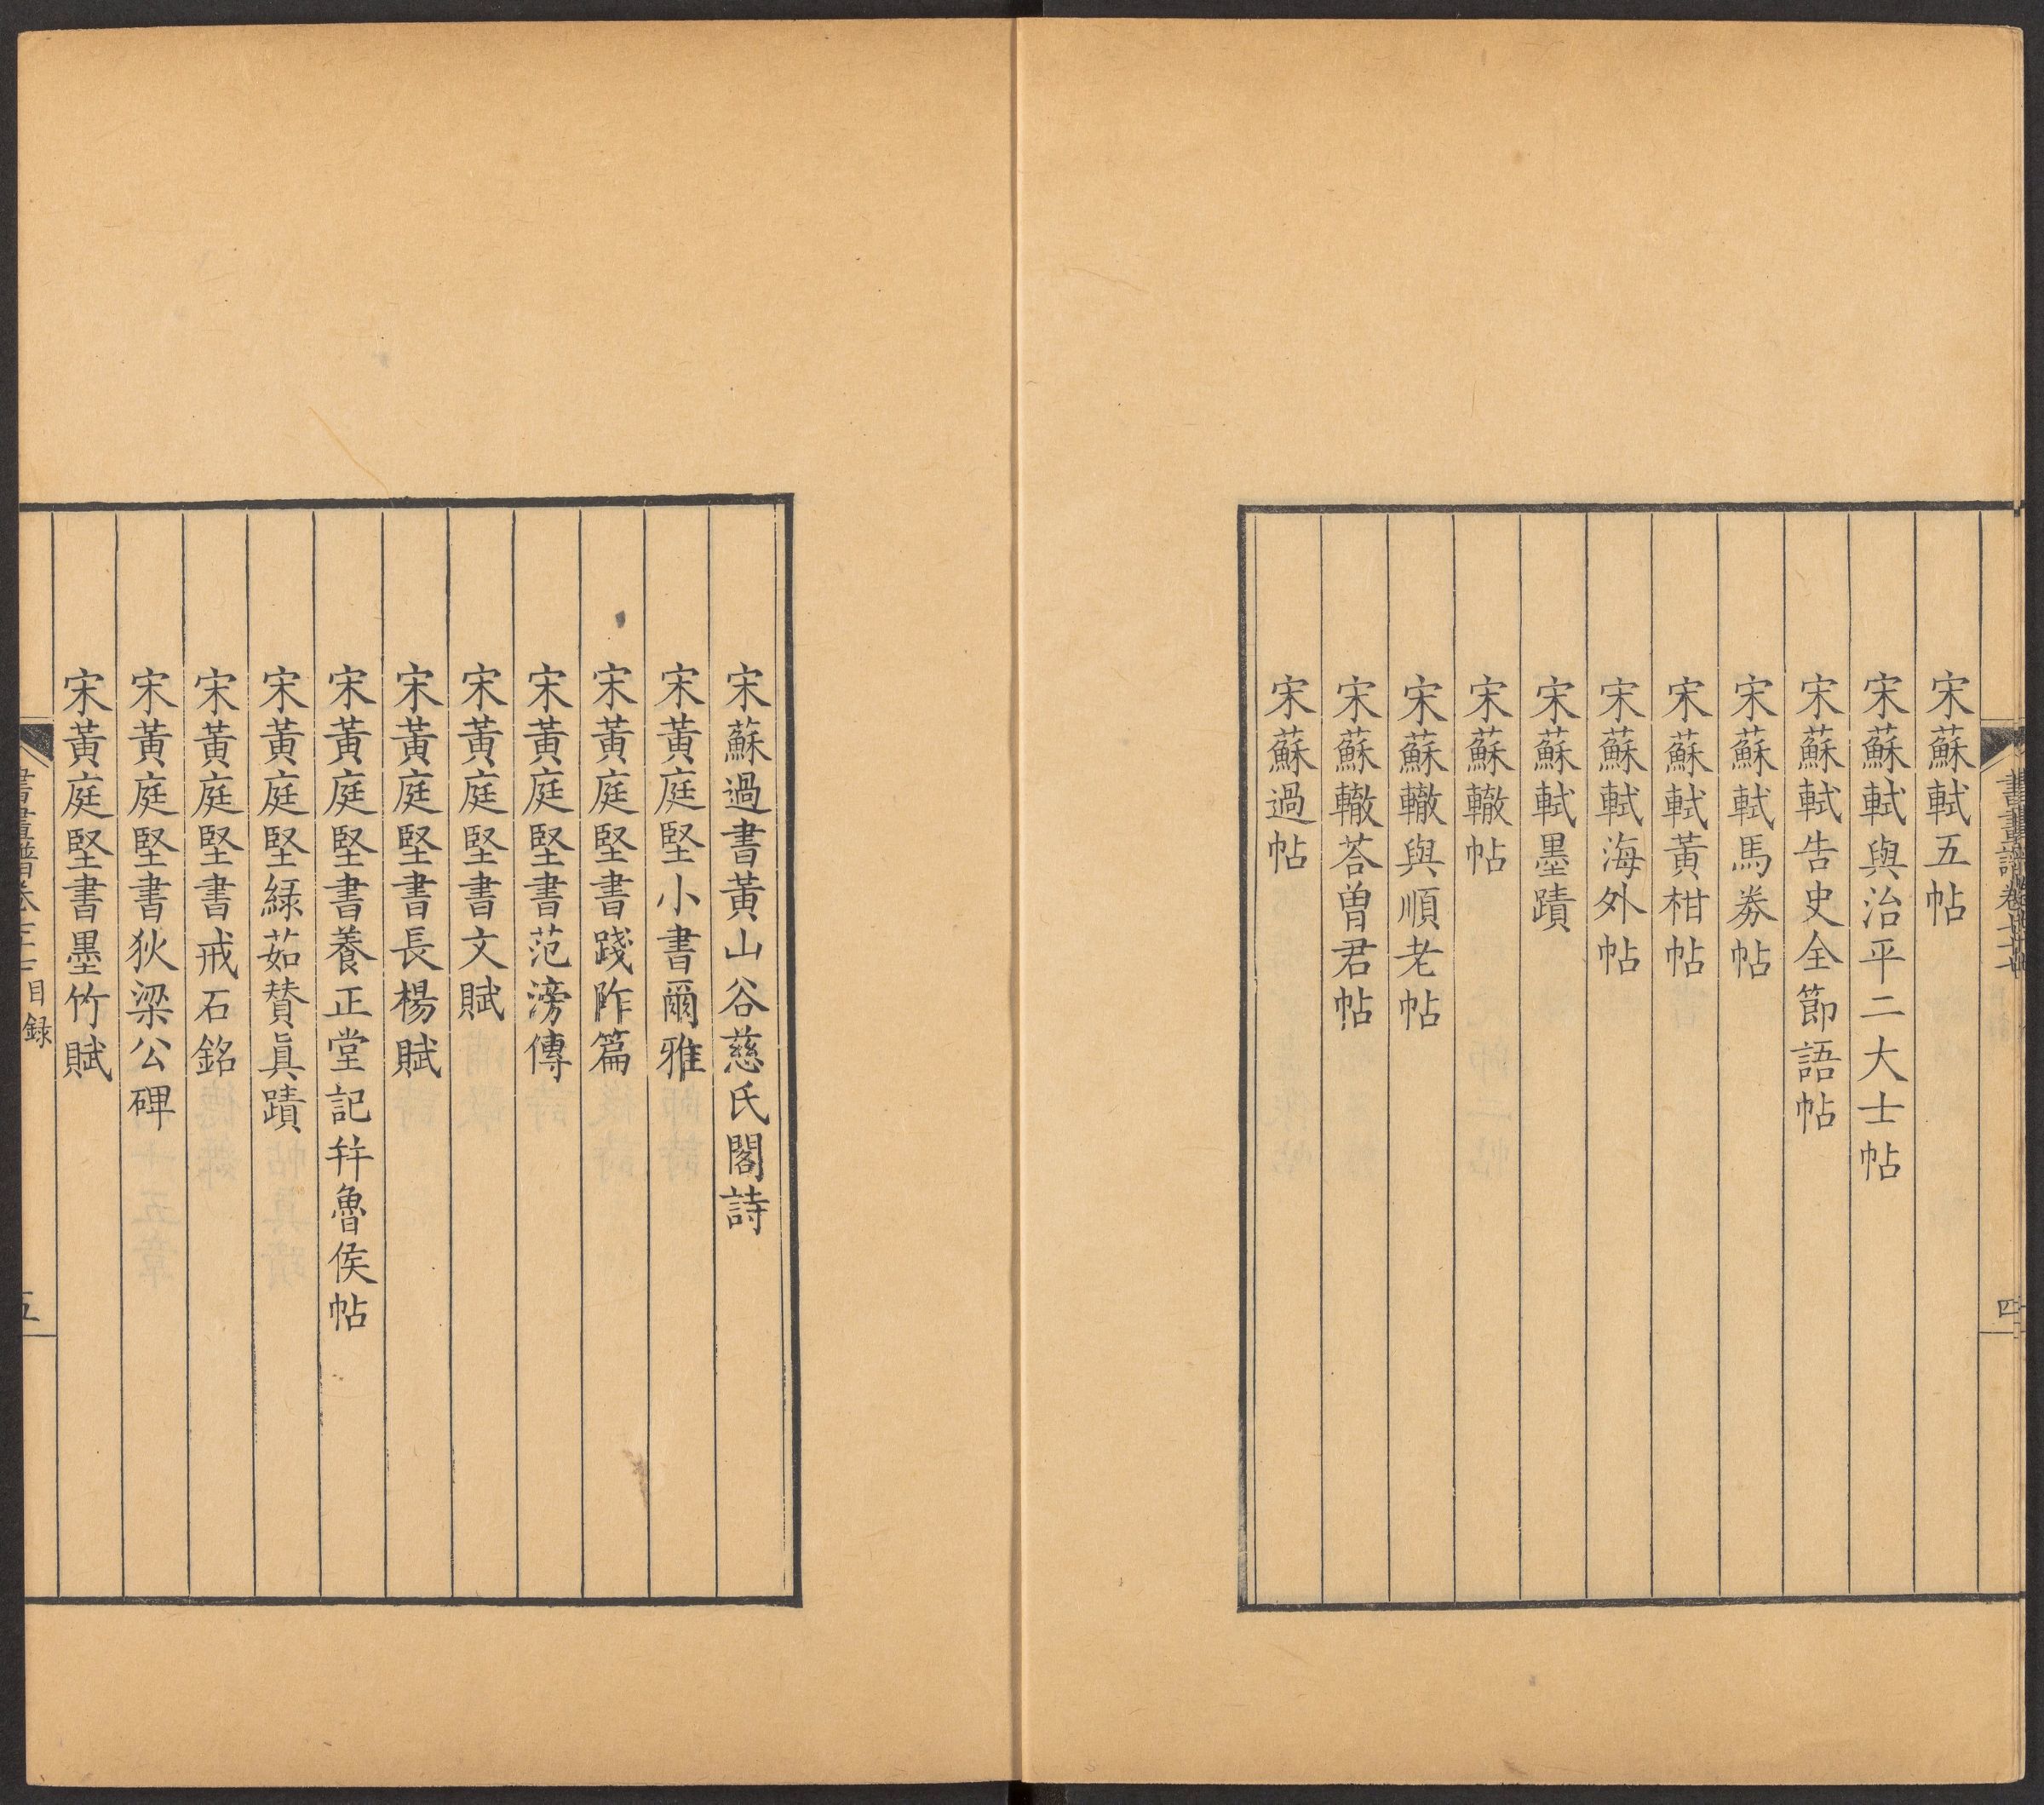 宋蘇軾五帖
宋蘇軾與治平二大士帖
宋蘇軾告史全節語帖
宋蘇軾馬券帖
宋蘇軾黃柑帖
宋蘇軾海外帖
宋蘇軾墨蹟
宋蘇轍帖
宋蘇轍與順老帖
宋蘇轍荅曾君帖
宋蘇過帖
四
宋蘇過書黃山谷慈氏閣詩
宋黃庭堅小書爾雅
宋黃庭堅書踐阼篇
宋黃庭堅書范滂傳
宋黃庭堅書文賦
宋黃庭堅書長楊賦
宋黃庭堅書養正堂記幷魯侯帖
宋黃庭堅緑茹贊眞蹟
宋黃庭堅書戒石銘
宋黃庭堅書狄梁公碑
宋黃庭堅書墨竹賦
目録
五